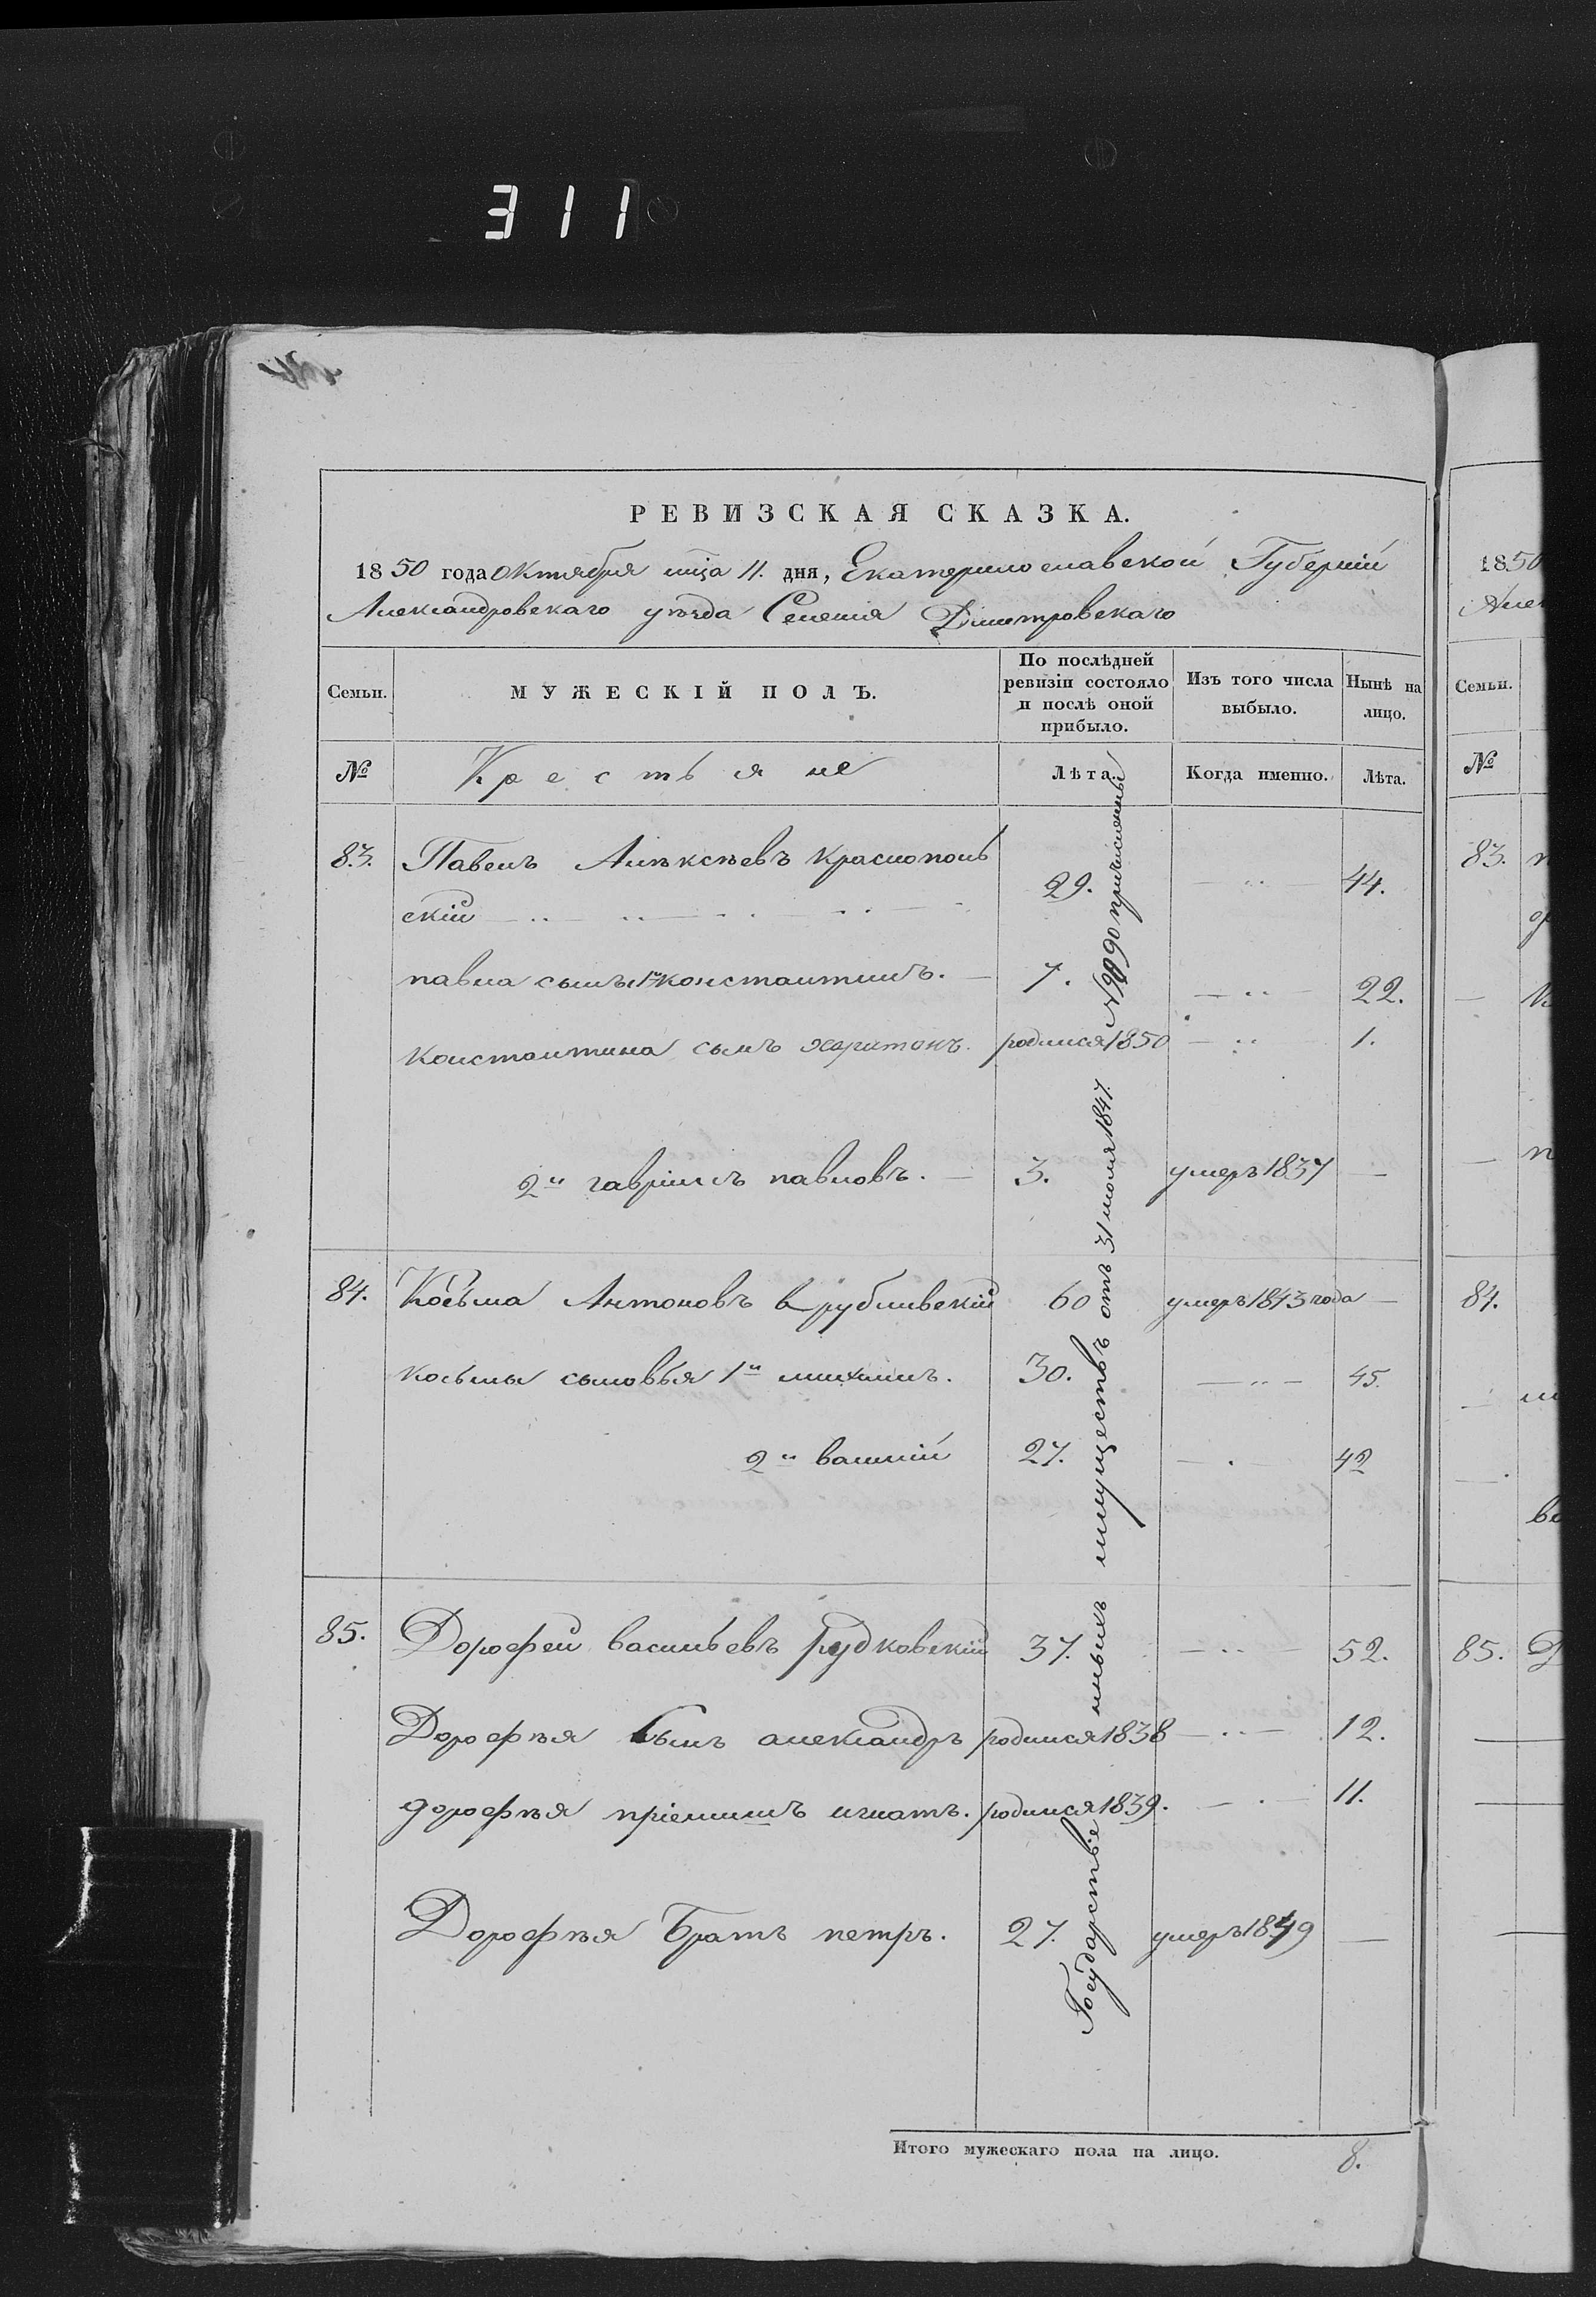 311
РЕВИЗСКАЯ СКАЗКА.
1850 года Октября мца 11. дня, Екатеринославской Губерніи
Александровскаго уѣзда Селенія Дмитровскаго
Семьи.
МУЖЕСКІЙ ПОЛЪ.
По послѣдней ревизіи состояло и послѣ оной прибыло.
Изъ того числа выбыло.
Нынѣ на лицо.
№ Крестьяне Лѣта. Когда именно. Лѣта.
83. Павелъ Алѣксѣевъ Краснополь
скій 29. 44.
павла сынъ 1й константинъ. 7. 22.
константина сынъ харитонъ. родился 1850 1.
2й гавріилъ павловъ. 3. умеръ 1837
84. Косьма Антоновъ Врублевскій 60 умеръ 1843 года
косьмы сыновья 1й михаилъ. 30. 45.
2й василій 27. 42
85. Дорофей васильевъ рудковскій 37. 52.
Дорофѣя сынъ александръ родился 1838 12.
дорофѣя пріемышъ игнатъ. родился 1839. 11.
Дорофѣя Братъ петръ. 27. умеръ 1849
Государствѣ
нныхъ имуществъ отъ 31 июля 1847. № 9090 причислены
Итого мужескаго пола на лицо. 8.
1850
Але
Семьи.
№
83.
84.
85.